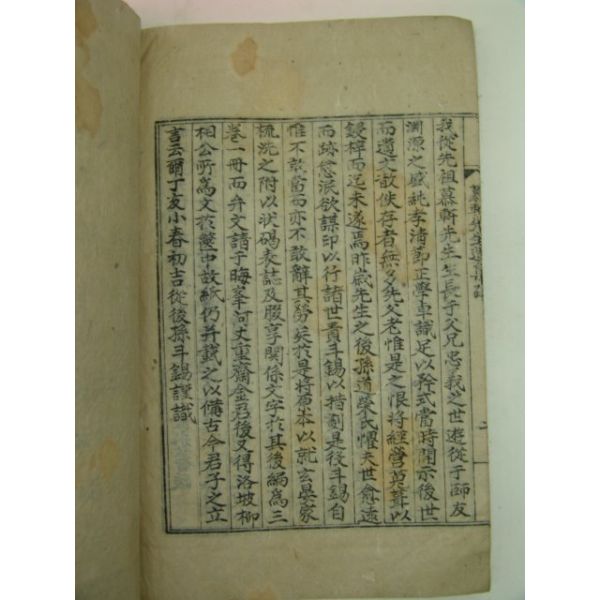 我從先祖慕軒先生生長于父兄忠義之世遊從于師友
淵源之盛純孝淸節正學卓識足以矜式當時開示後世
而遺文散佚存者無多先父老惟是之恨將經營奠葺以
鋟梓而迄未遂焉昨歲先生之後孫道榮氏懼夫世愈遠
而跡愈泯欲謀印以行諸世責斗錫以替剞是役斗錫自
惟不敢當而亦不敢辭其勞矣於是將原本以就玄晏家
梳洗之附以狀碣表誌及腏享關係文字於其後編爲三
卷一冊而弁文請于晦峯河丈重齋金君後又得洛坡柳
相公所爲文於篋中故紙仍幷載之以備古今君子之立
言云爾丁亥小春初吉從後孫斗錫謹識